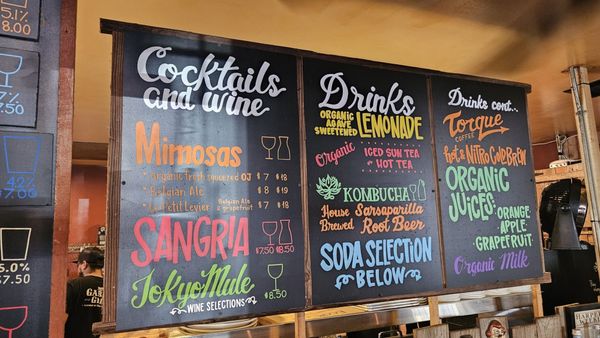 5.1%
8.00
7%
7.50
4.2%
7.00
5.0%
$7.50
Cocktails
and wine
Mimosas
• organic fresh squeezed OJ $7 $18
• Belgian Ale $8 $19
• Le Petit Levier Belgian Ale & grapefruit $7 $18
SANGRIA $7.50 $18.50
Tokyo Mule $8.50
WINE SELECTIONS
Drinks
ORGANIC
AGAVE
SWEETENED LEMONADE
Organic ICED SUN TEA
or HOT TEA
KOMBUCHA
House Sarsaparilla
Brewed Root Beer
SODA SELECTION
BELOW
Drinks cont..
Torque
COFFEE
hot & NITRO COLD BREW
ORGANIC
JUICES:
ORANGE
APPLE
GRAPEFRUIT
Organic Milk